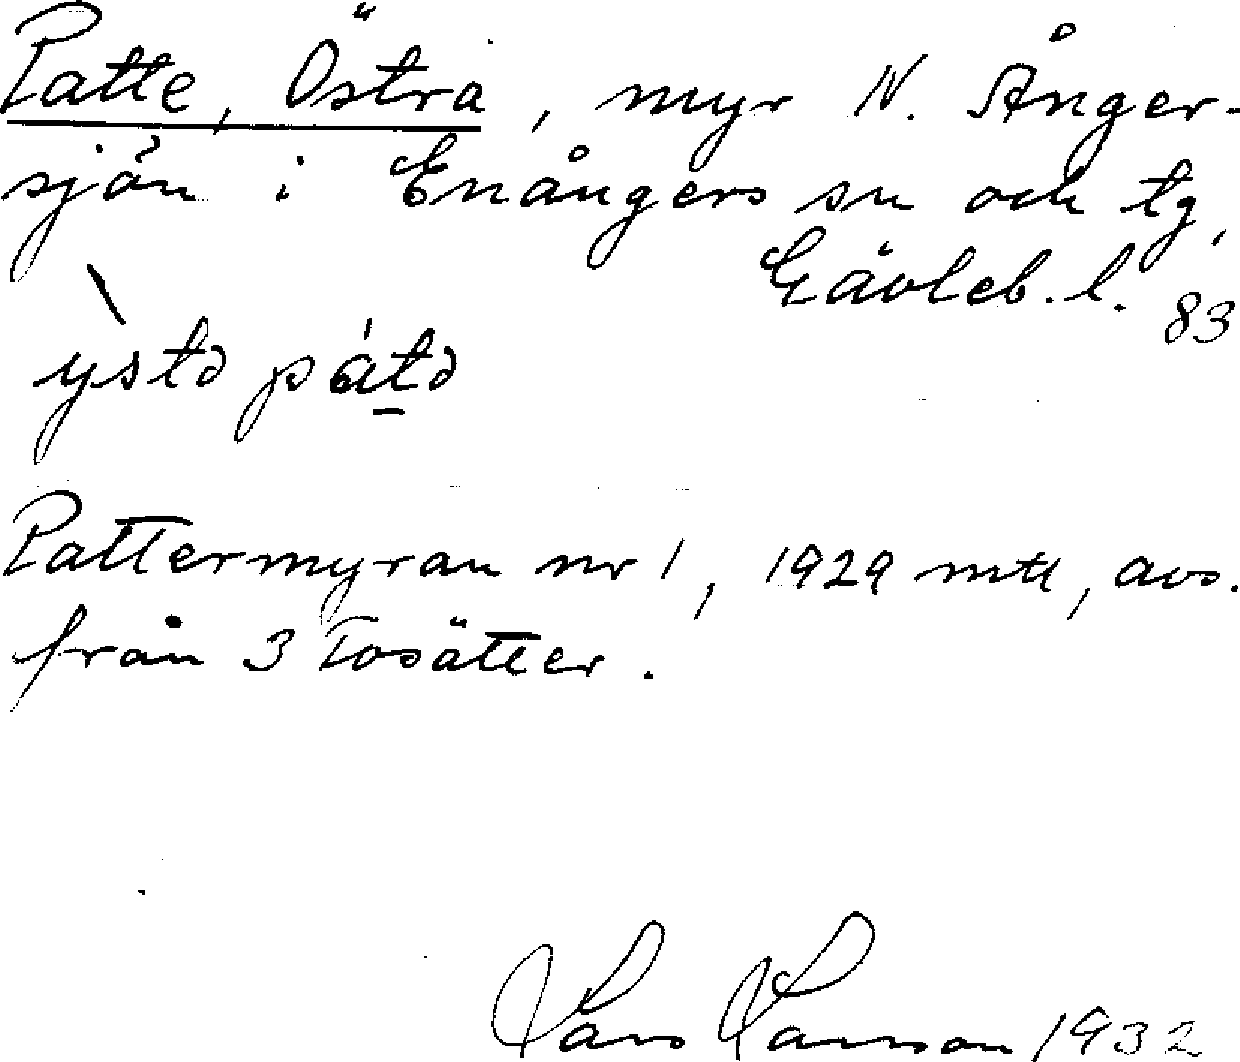 Patte, Östra, myr N. Ånger-
sjön i Enångers sn och tg,
Gävleb. l. 83
ỳstə pátə
Pattermyran nr 1, 1929 mtl, avs.
från 3 Tosätter.
Lars Larsson 1932